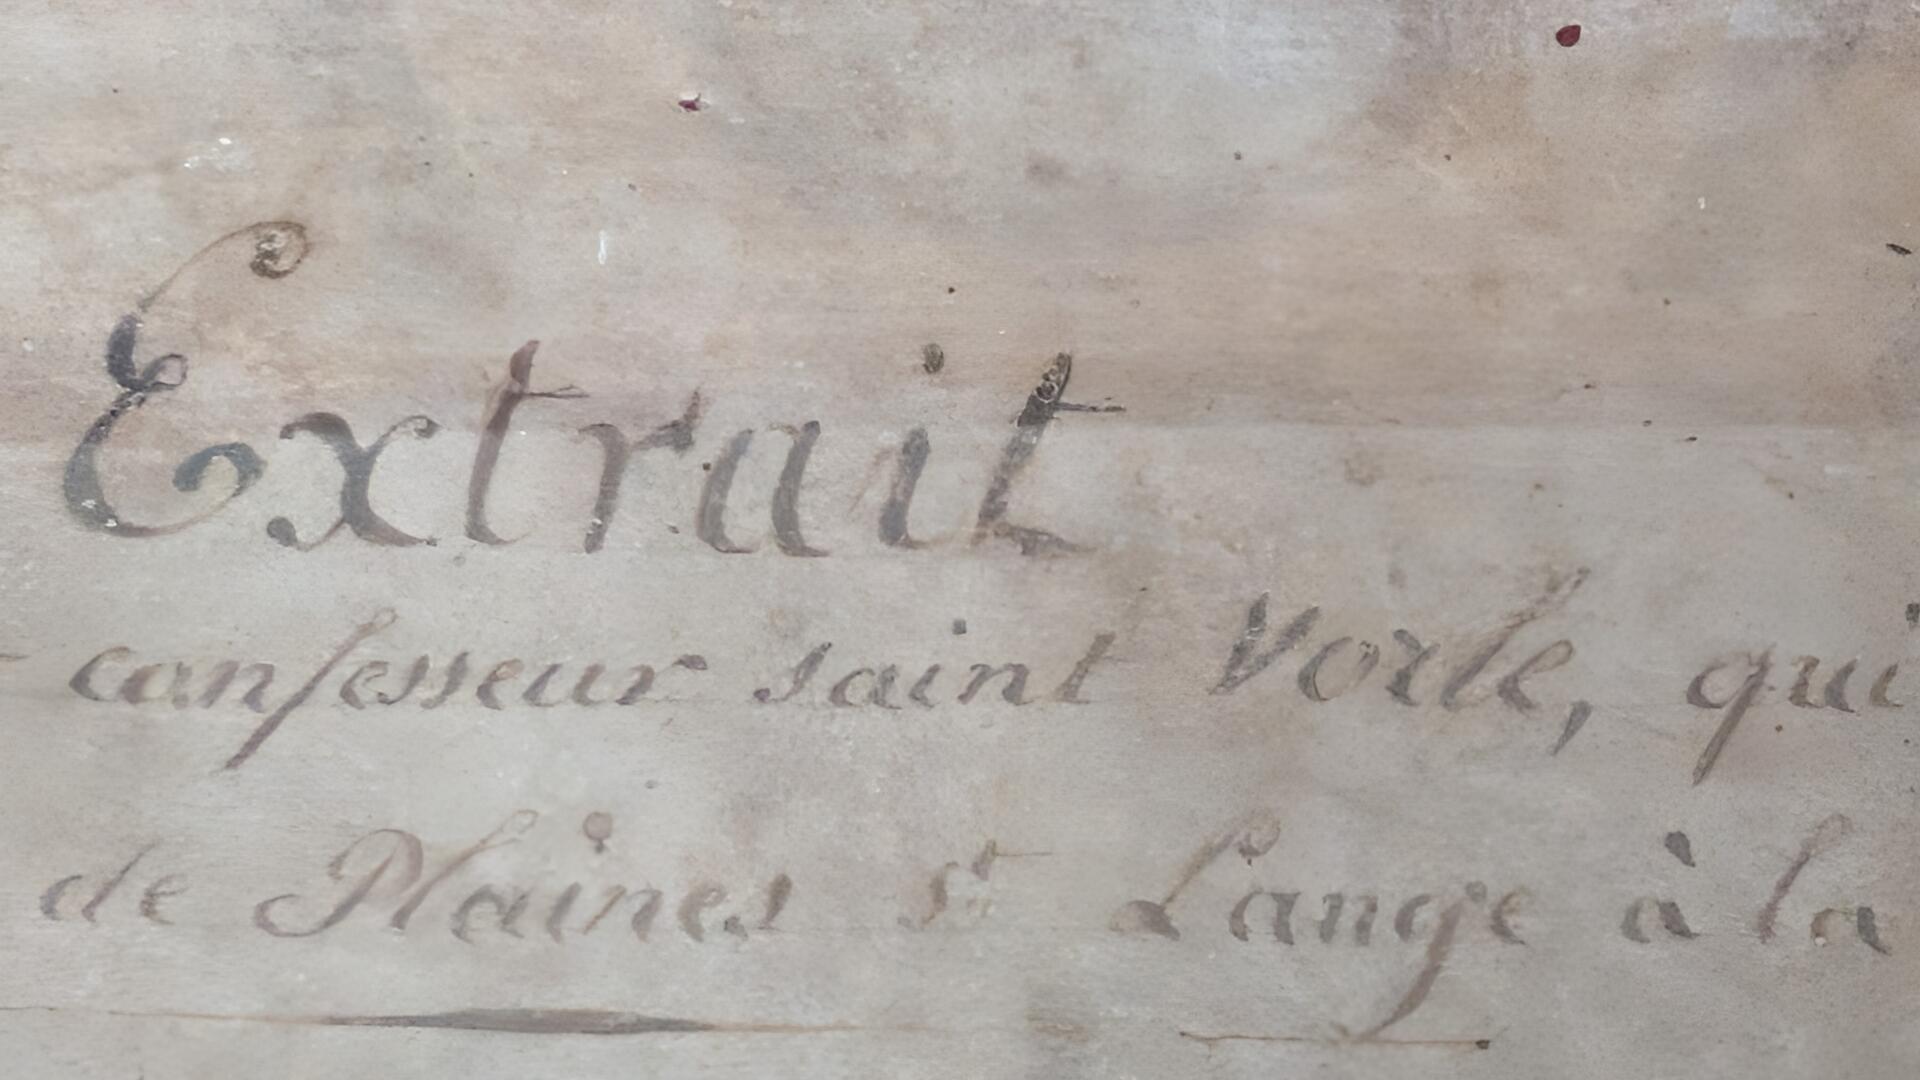 Extrait
confesseur saint Vorle, qui
de Plaines St Lange à la